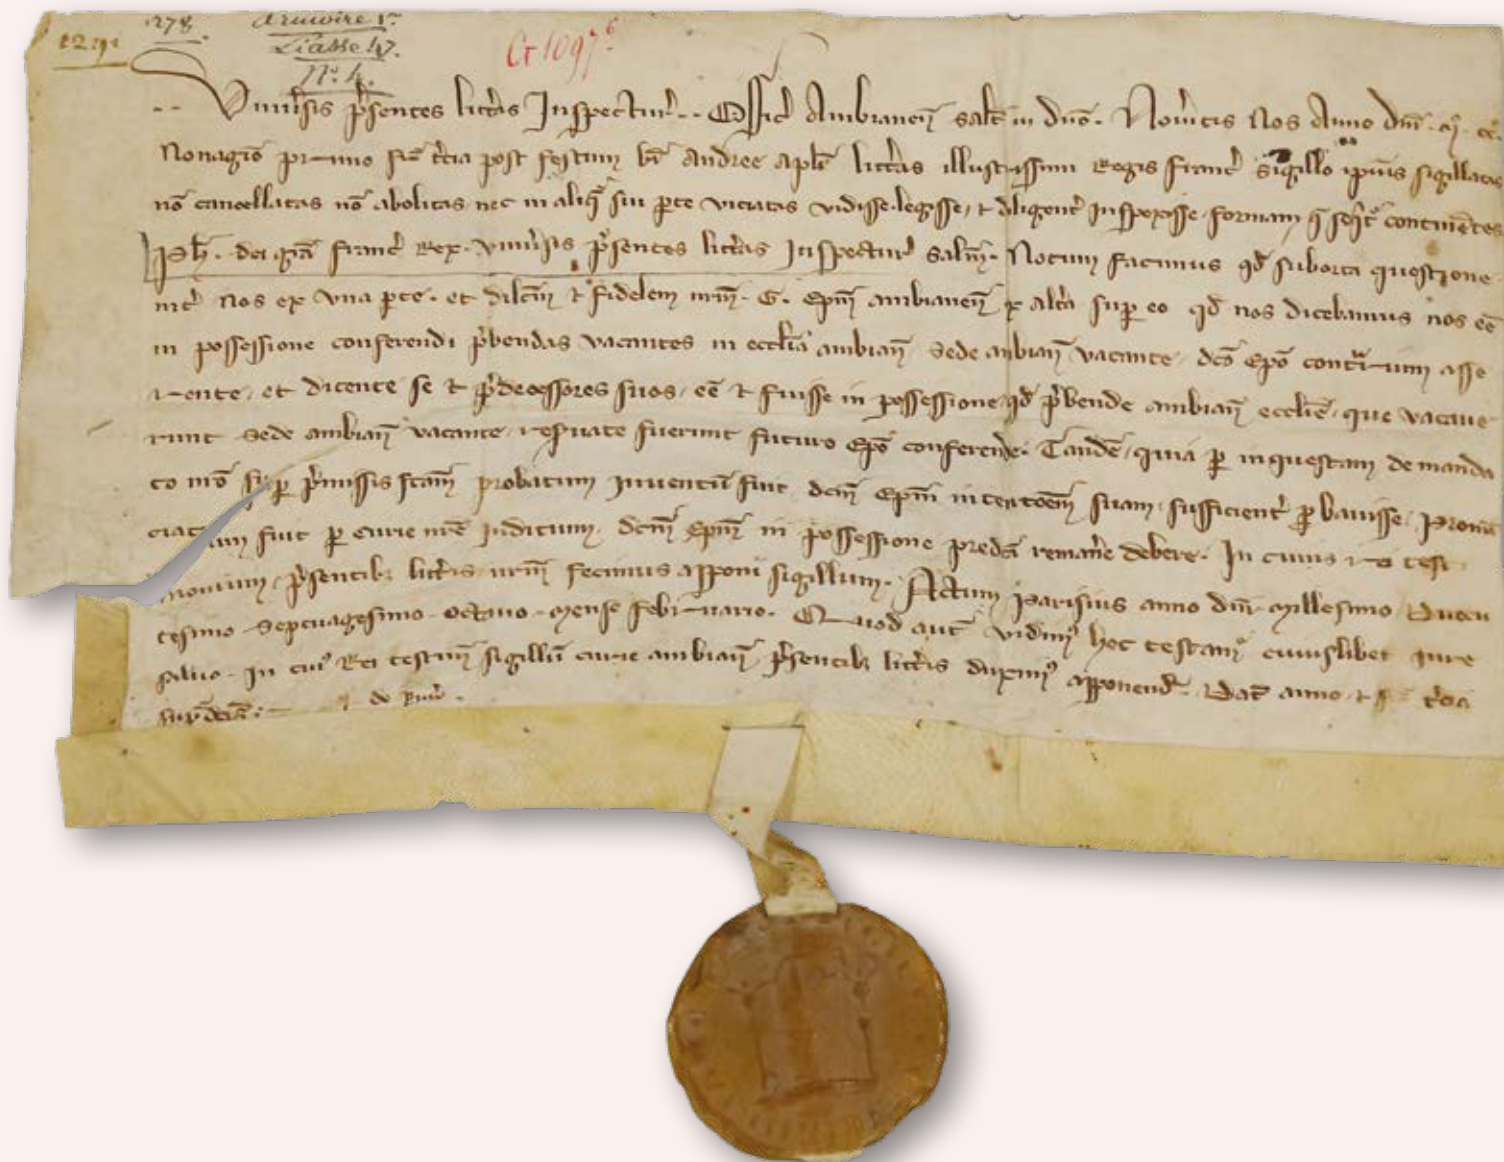 1291
278.
Armoire 1re
Liasse 47.
No. 4.
G 1097 6
.. Univ'sis p'sentes litt'as Inspectur' .. Offic' Ambianen̄ salt̄ in dn̄o. Nov'itis Nos Anno dn̄i. mo. cco.
Nonages̄ primo fīa t'cia post festum bī Andree apl̄i litt'as illustrissimi Regis franc' sigillo ip̄ius sigillatas
nō cancellatas nō abolitas nec in aliqa sui p̄te viciatas vidisse. legisse, ⁊ diligent' Inspexisse formam q̄ seqit' continētes
Ph̄. dei grā franc' Rex. Univ'sis p'sentes litt'as Inspectur' salt̄m. Notum facimus qd̄ suborta questione
int' nos ex una p̄te. et dilc̄m ⁊ fidelem nrm̄. G. Ep̄m ambianen̄ ex alt'a sup̄ eo qd̄ nos dicebamus nos eē
in possessione conferendi p'bendas vacantes in eccl̄ia ambian̄ sede ambian̄ vacante, dc̄o Ep̄o contrarium asse
rente, et dicente se ⁊ p'decessores suos, eē ⁊ fuisse in possessione qd̄ p'bende ambian̄ eccl̄ie, que vacave
runt sede ambian̄ vacante, res'vate fuerunt futuro Ep̄o conferende. Tandē, quia p̄ inquestam de manda
to nr̄o sup̄ p'missis fc̄am probatum inventū fuit dc̄m Ep̄m intentōem suam sufficient' p̄bavisse, Pronū
ciatum fuit p̄ curie nr̄e Judicium, dc̄m Ep̄m in possessione predc̄a reman'e debere. In cuius rei testi
monium, p'sentib; litt'is nrm̄ fecimus apponi sigillum. Actum Parisius anno dn̄i millesimo Ducen
tesimo Septuagesimo octavo mense februario. Quod aut̄ vidimꝰ hoc testamꝰ cuiuslibet iure
salvo. In cuiꝰ Rei testim̄ sigillū curie ambian̄ p'sentib; litt'is duximꝰ apponend'. Dat̄ anno ⁊ t'cia
sup̄dc̄is.